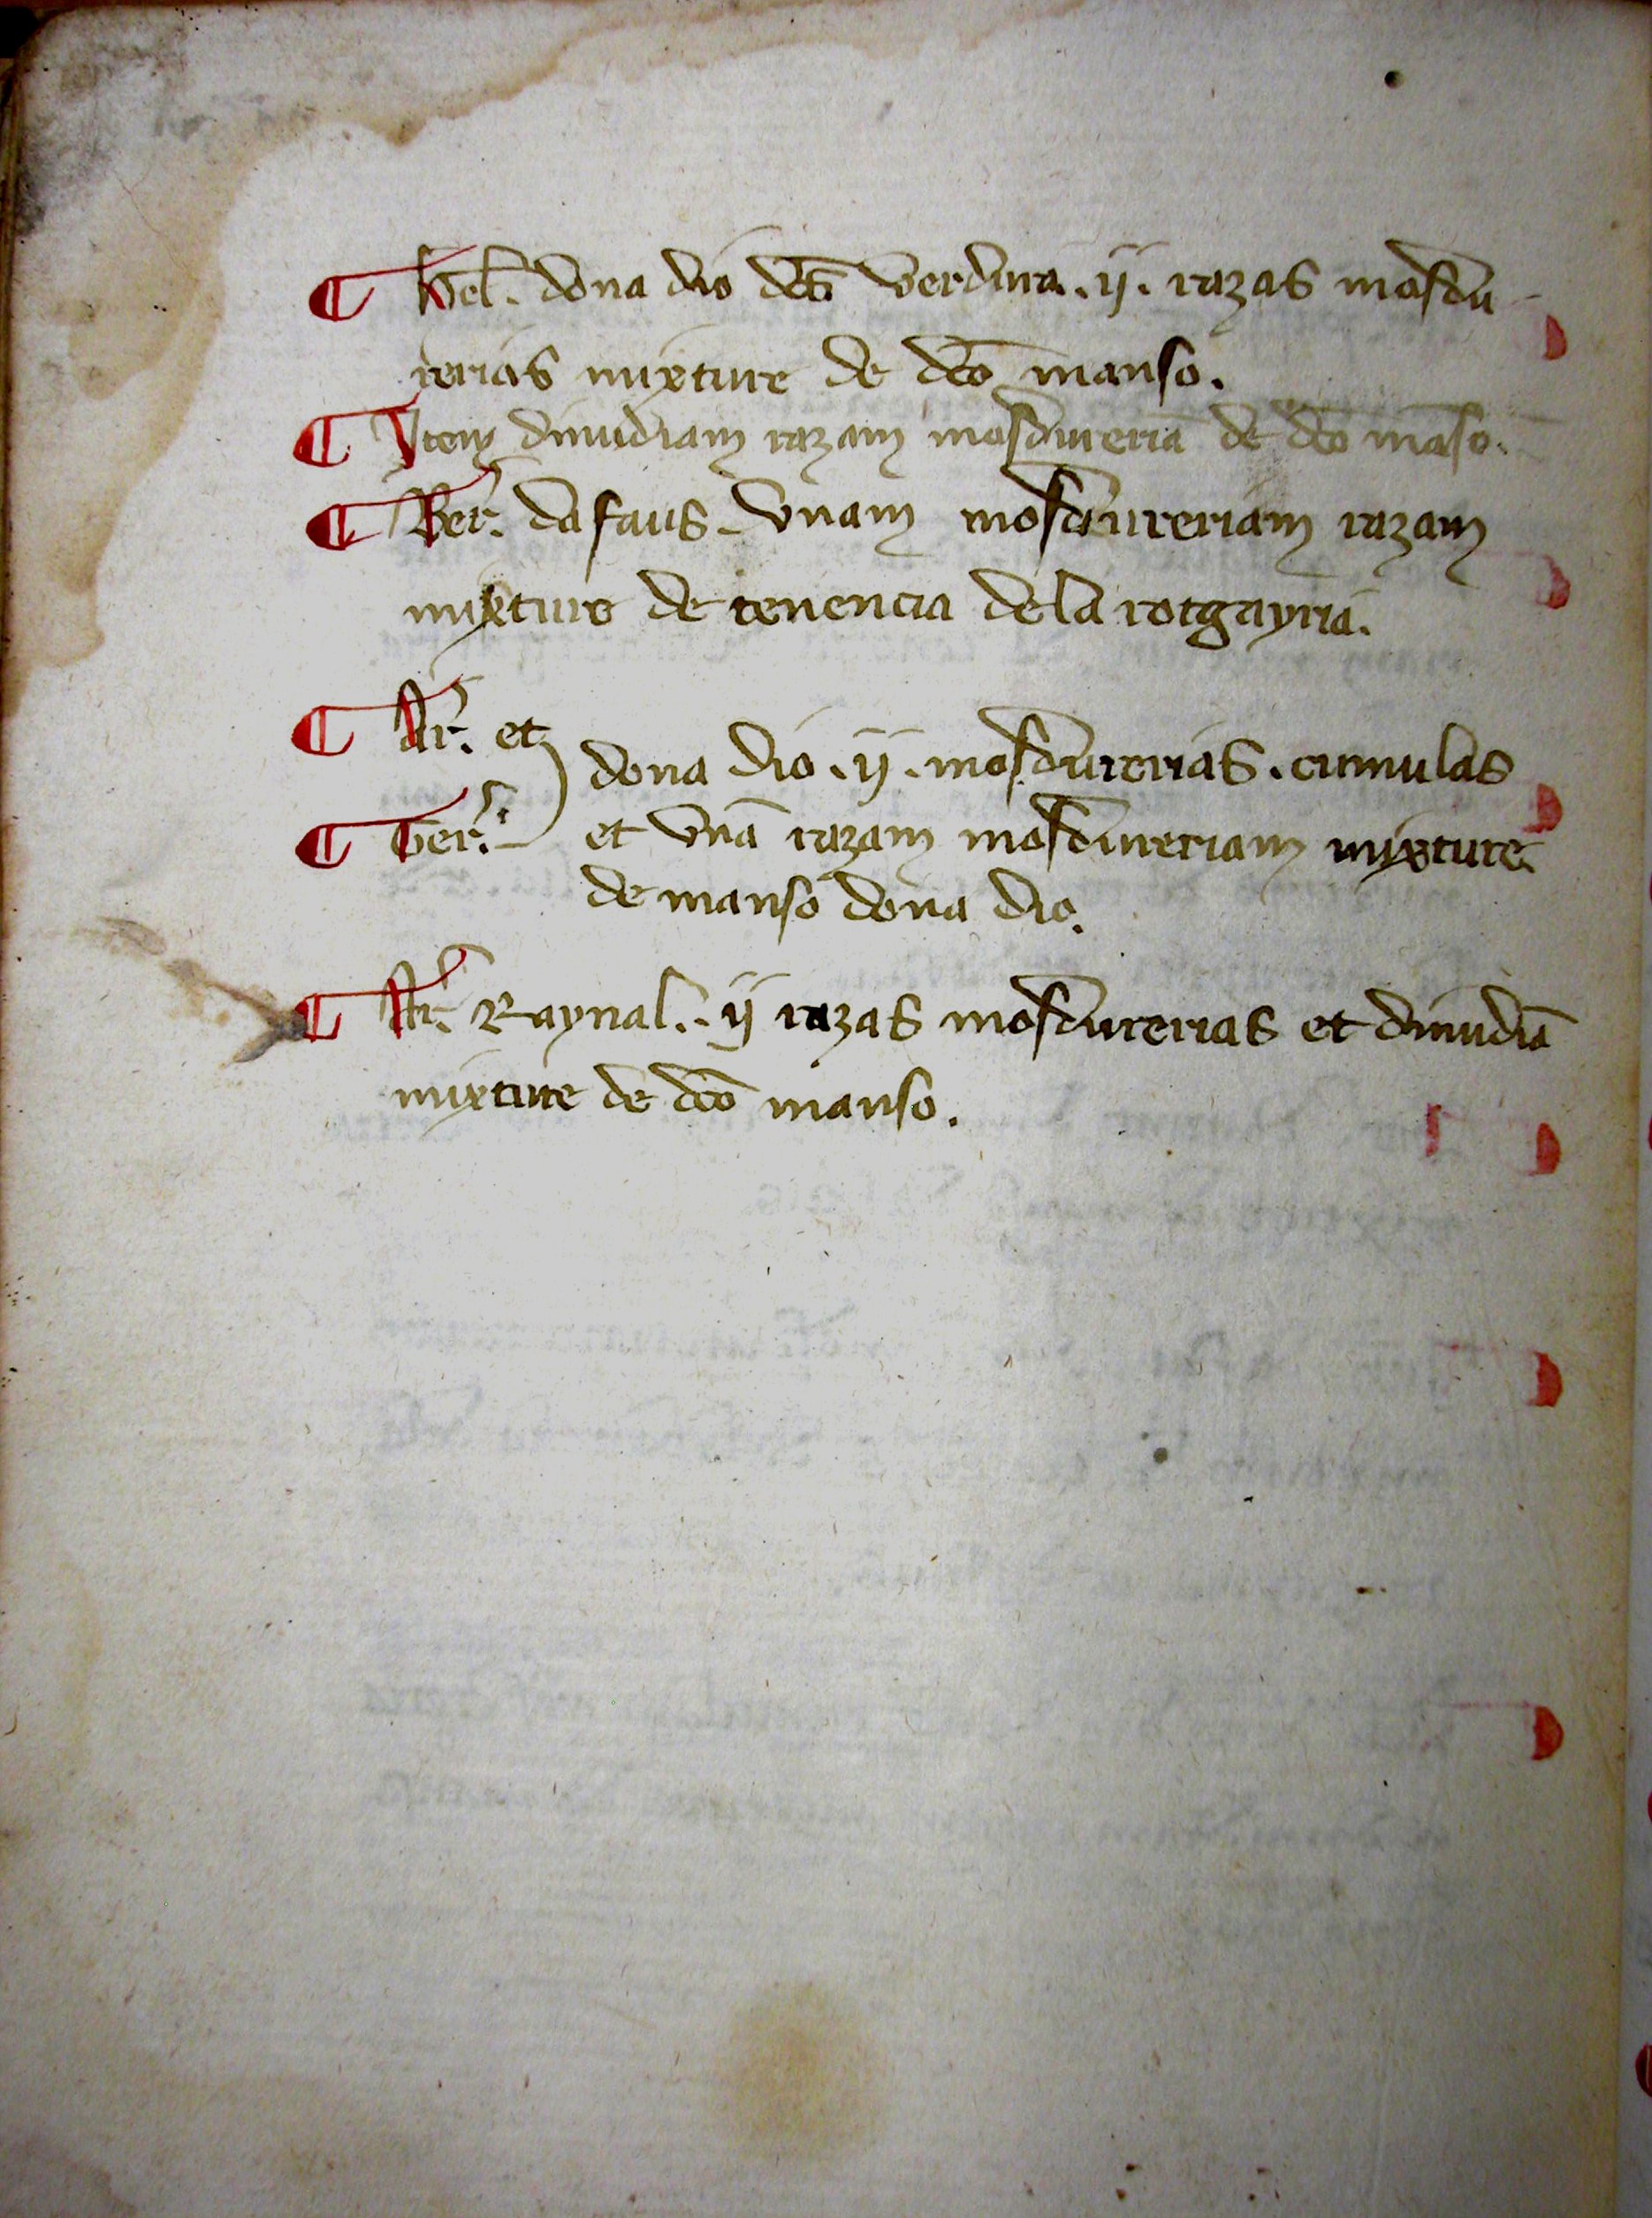 ¶ Gel. dona dio dcs verdura .ij. razas mosdu
rerias mixture de dco manso.
¶ Item dimidiam razam mosdureriā de dco māso.
¶ Ber. da faus unam mosdureriam razam
mixture de tenencia de la rotgayria.
¶ Ar. et
dona dio .ij. mosdurerias. cumulas
¶ Ger. et unā razam mosdureriam mixture
de manso dona dio.
¶ Ar. Raynal. ij razas mosdurerias et dimidiā
mixture de dco manso.